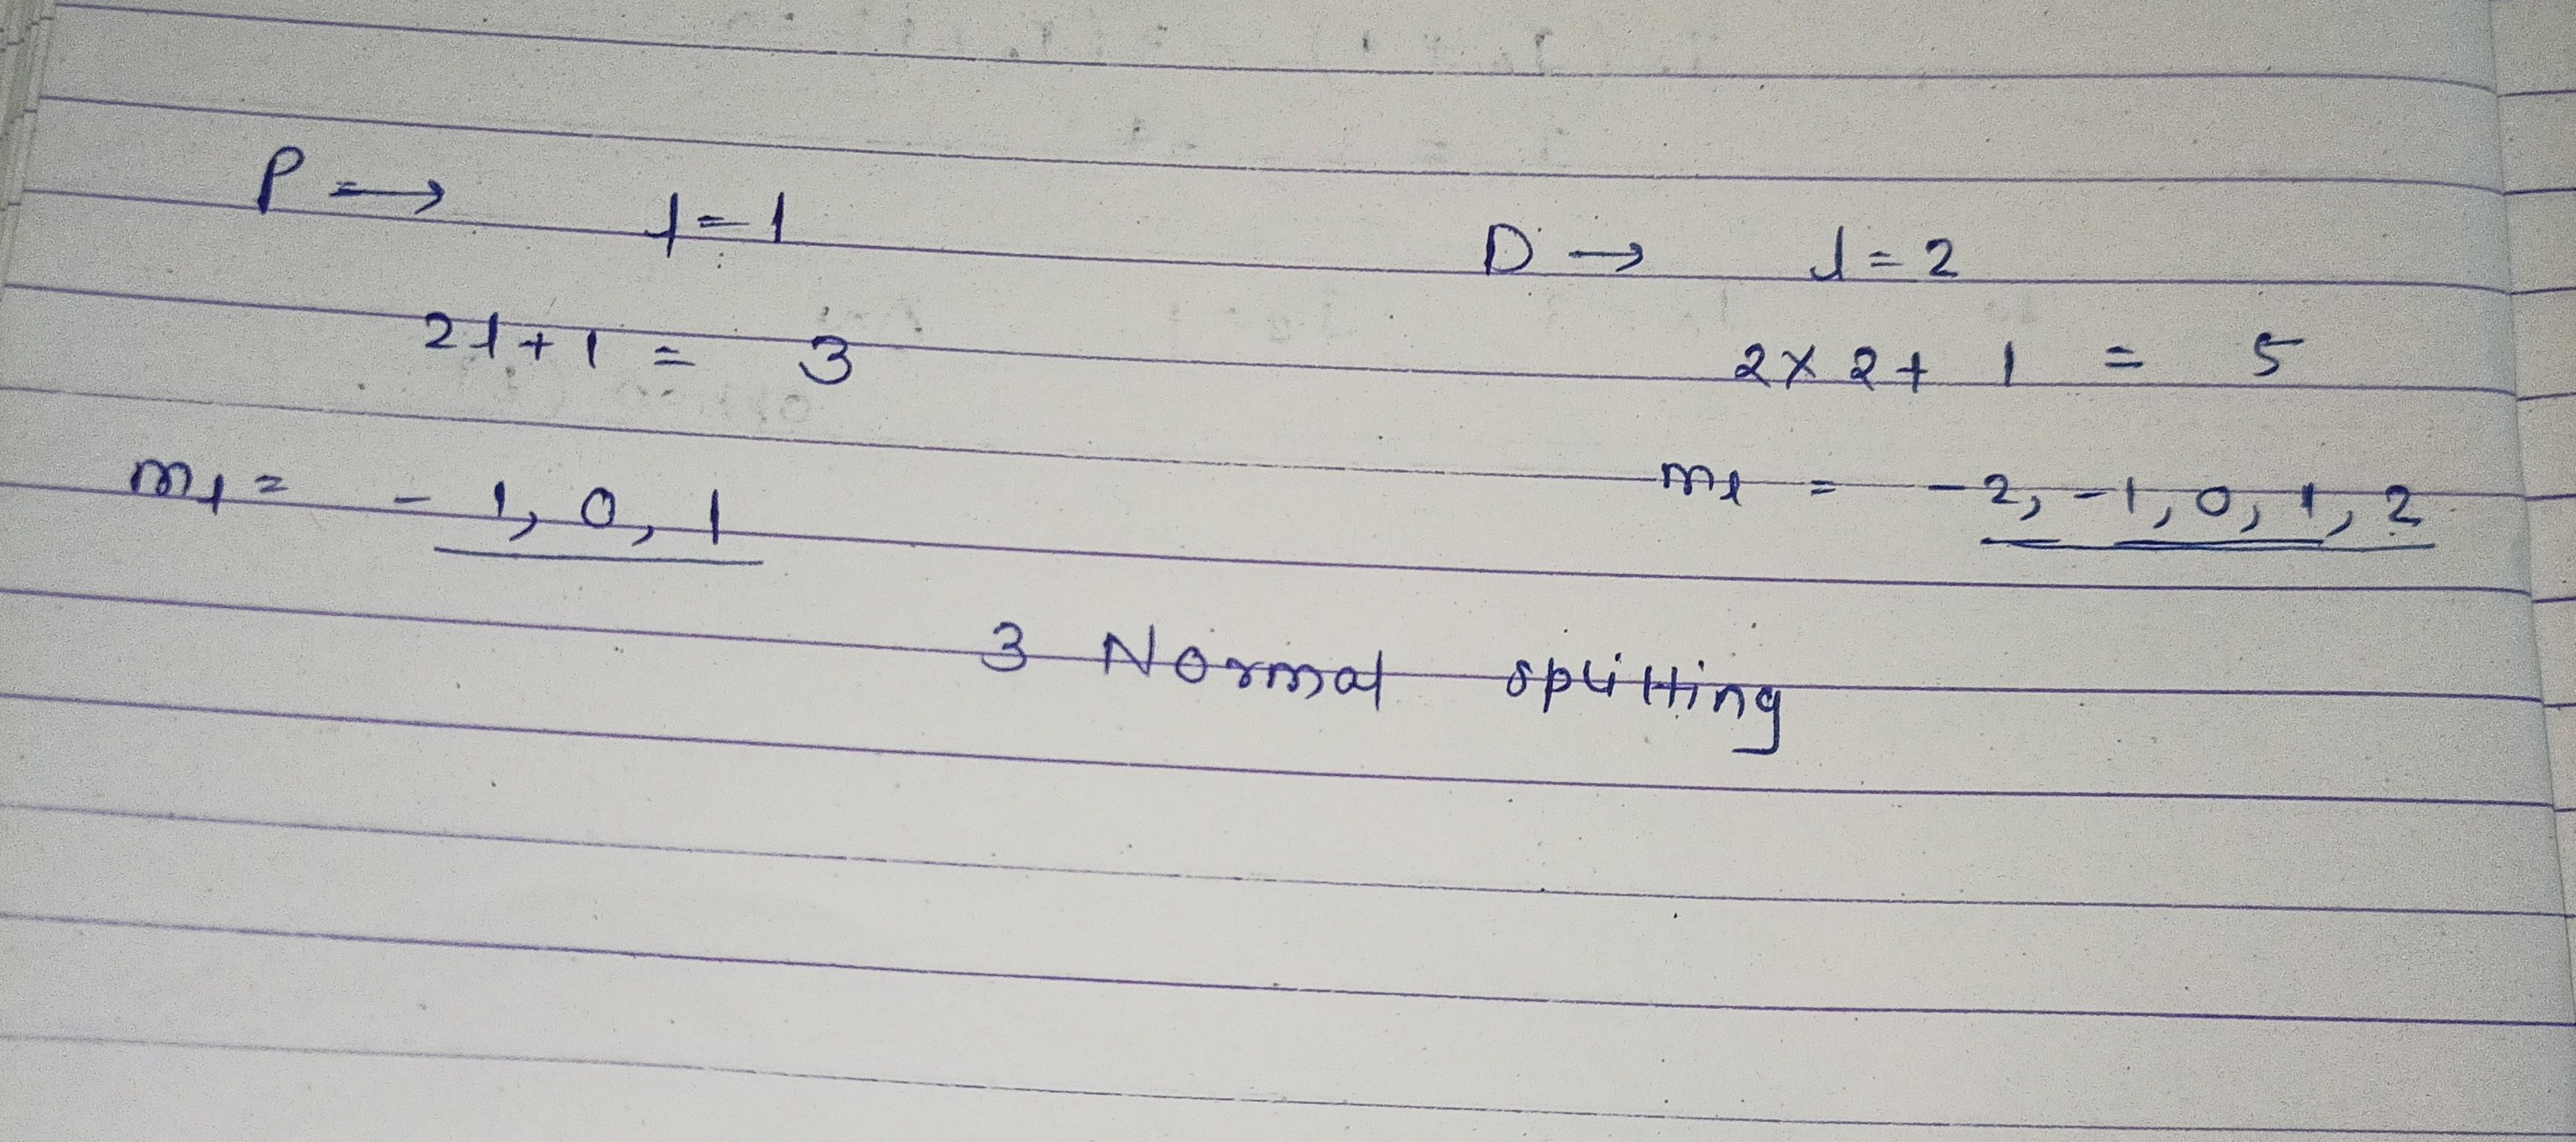 P → l = 1
D → l = 2
2l + 1 = 3
2 × 2 + 1 = 5
ml = - 1, 0, 1
ml = - 2, - 1, 0, 1, 2
3 Normal splitting